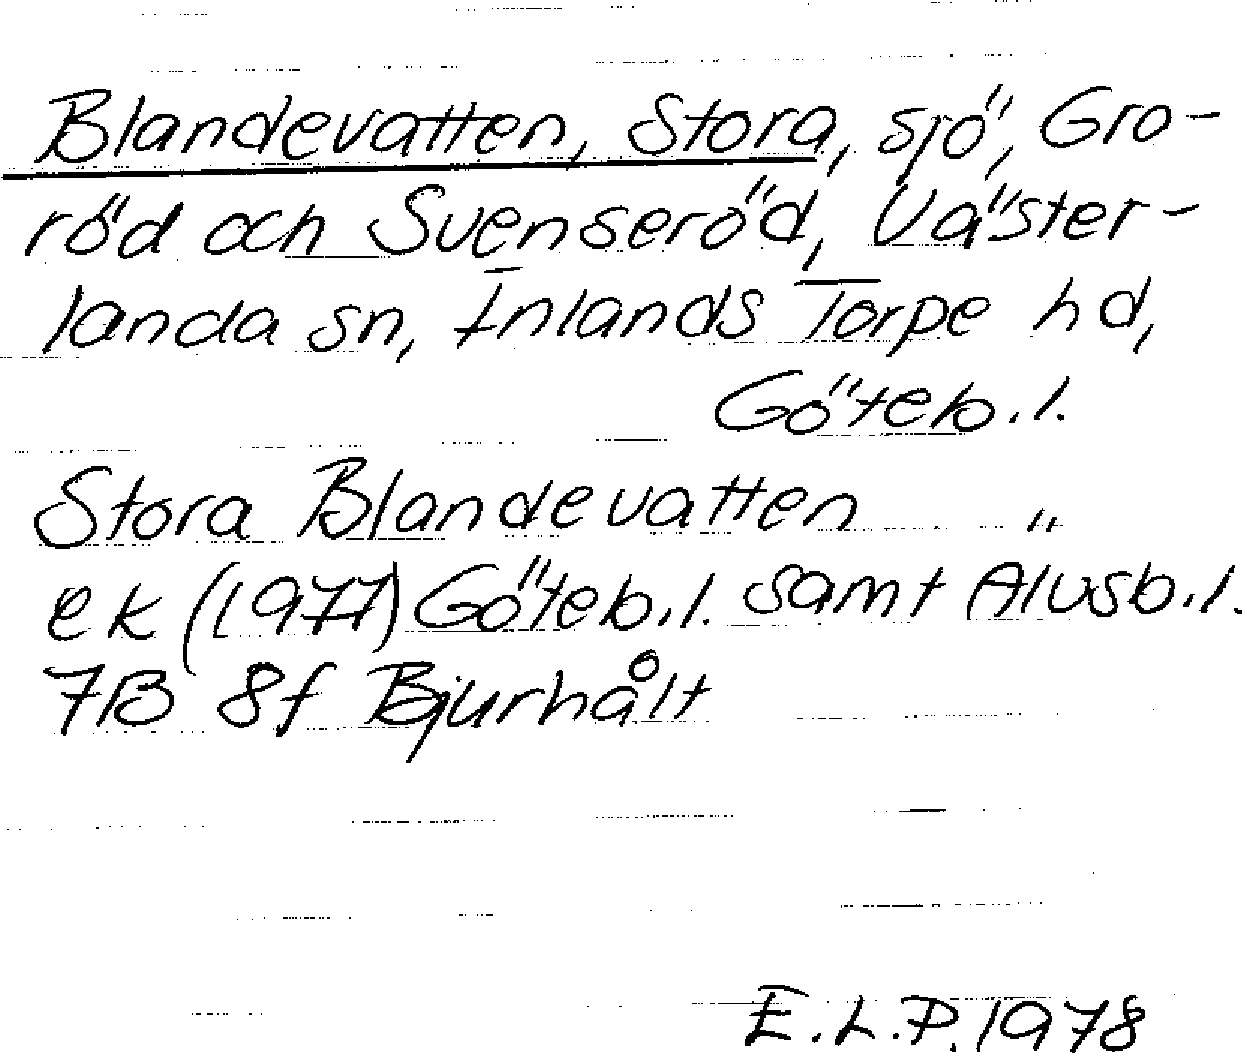 Blandevatten, Stora, sjö, Gro-
röd och Svenseröd, Väster-
landa sn, Inlands Torpe hd,
Göteb.l.
Stora Blandevatten "
ek (1977) Göteb.l. samt Älvsb.l.
7B 8f Bjurhålt
E.L.P. 1978